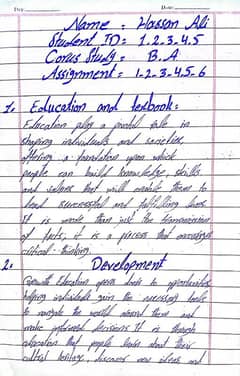 Day:
Date:
Name : Hassan Ali
Student ID: 1.2.3.4.5
Corus Study = B.A
Assignment : 1.2.3.4.5.6
1. Education and textbook:
Education play a pivotal role in
shaping individuals and societies,
offering a foundation upon which
people can build knowledge, skills
and values that will enable them to
lead successful and fulfilling lives
It is more than just the transmission
of facts, it is a process that encourages
critical-thinking
2. Development
Growth Education opens doors to opportunities
helping individuals gain the necessary tools
to navigate the world around them and
make informed decisions It is through
education that people learn about their
cultural heritage, discover new ideas and